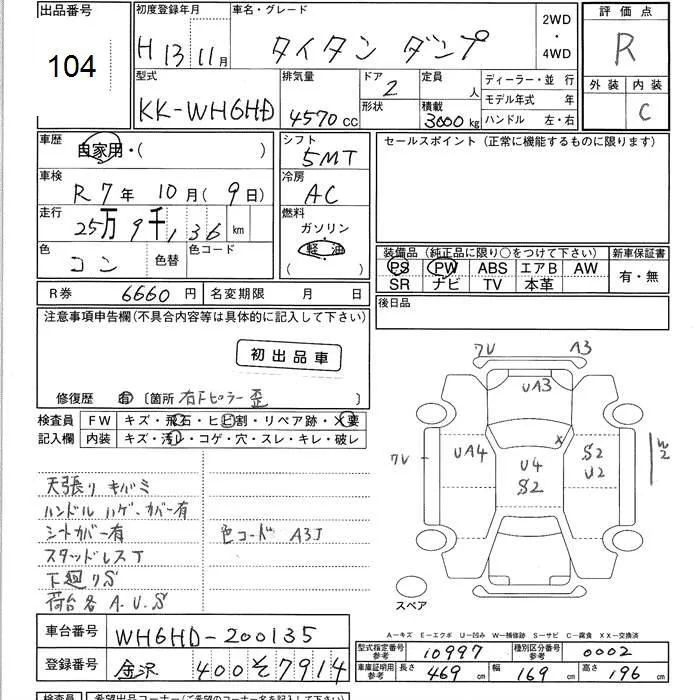 出品番号
104
初度登録年月
H 13 11月
車名・グレード
タイタン ダンプ
2WD
・
4WD
評価点
R
外装 内装
C
型式
KK-WH6HD
排気量
4570 cc
ドア
2
形状
定員
人
積載
3000 kg
ディーラー・並 行
モデル年式 年
ハンドル 左・右
車歴
自家用・( )
シフト
5MT
セールスポイント (正常に機能するものに限ります)
車検
R 7年 10月(9日)
冷房
AC
走行
25万9千,136 km
燃料
ガソリン
軽油
( )
色
コン
色替
色コード
装備品 (純正品に限り○をつけて下さい)
新車保証書
PS PW ABS エアB AW
SR ナビ TV 本革
有・無
R券 6660 円
名変期限 月 日
後日品
注意事項申告欄(不具合内容等は具体的に記入して下さい)
初出品車
修復歴 有 〔箇所 右Fピラー歪 〕
検査員
記入欄
FW キズ・飛石・ヒビ割・リペア跡・X要
内装 キズ・汚レ・コゲ・穴・スレ・キレ・破レ
天張り キバミ
ハンドル ハゲ、カバー有
シートカバー有
スタッドレスT
下廻りS
荷台各 A.U.S
色コード A3J
7U
A3
UA3
X
7U
UA4
U4
S2
S2
U2
W2
スペア
A-キズ E-エクボ U-凹み W-補修跡 S-サビ C-腐食 XX-交換済
車台番号
WH6HD-200135
登録番号
金沢 400 そ 7914
型式指定番号
参考
10997
種別区分番号
参考
0002
車庫証明用
参考
長さ 469 cm
幅 169 cm
高さ 196 cm
検査員
希望出品コーナー(ご希望のコーナー名を記入して下さい)